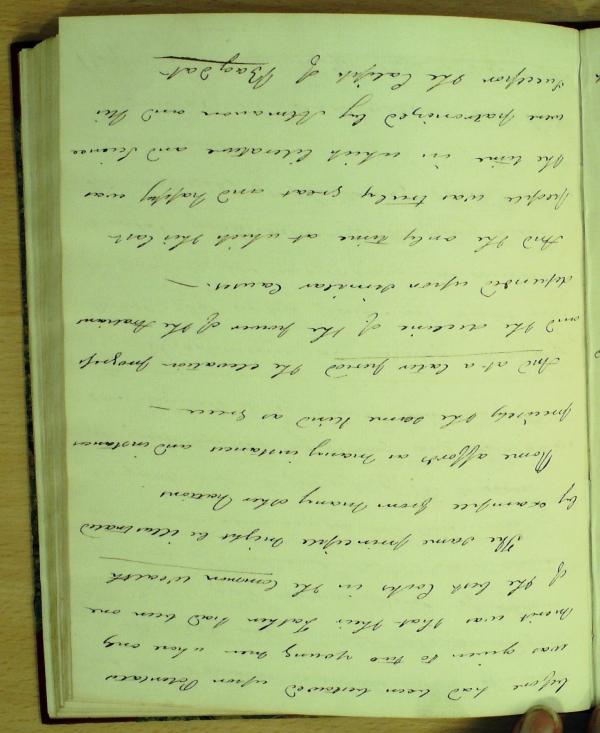 before had been bestowed upon Potentates
was given to two young men whose only
merit was that their Father had been one
of the best Cooks in the Common Wealth
The same principle might be illustrated
by example from many other Nations
Rome affords as many instances and instances
precisely the same kind as Greece —
And at a later period the elevation progress
and the decline of the power of the Arabians
depended upon similar Causes. —
And the only time at which this last
People was truly great and happy was
the time in which literature and Science
were patronized by Almanon and his
Successor the Caliph of Bagdat